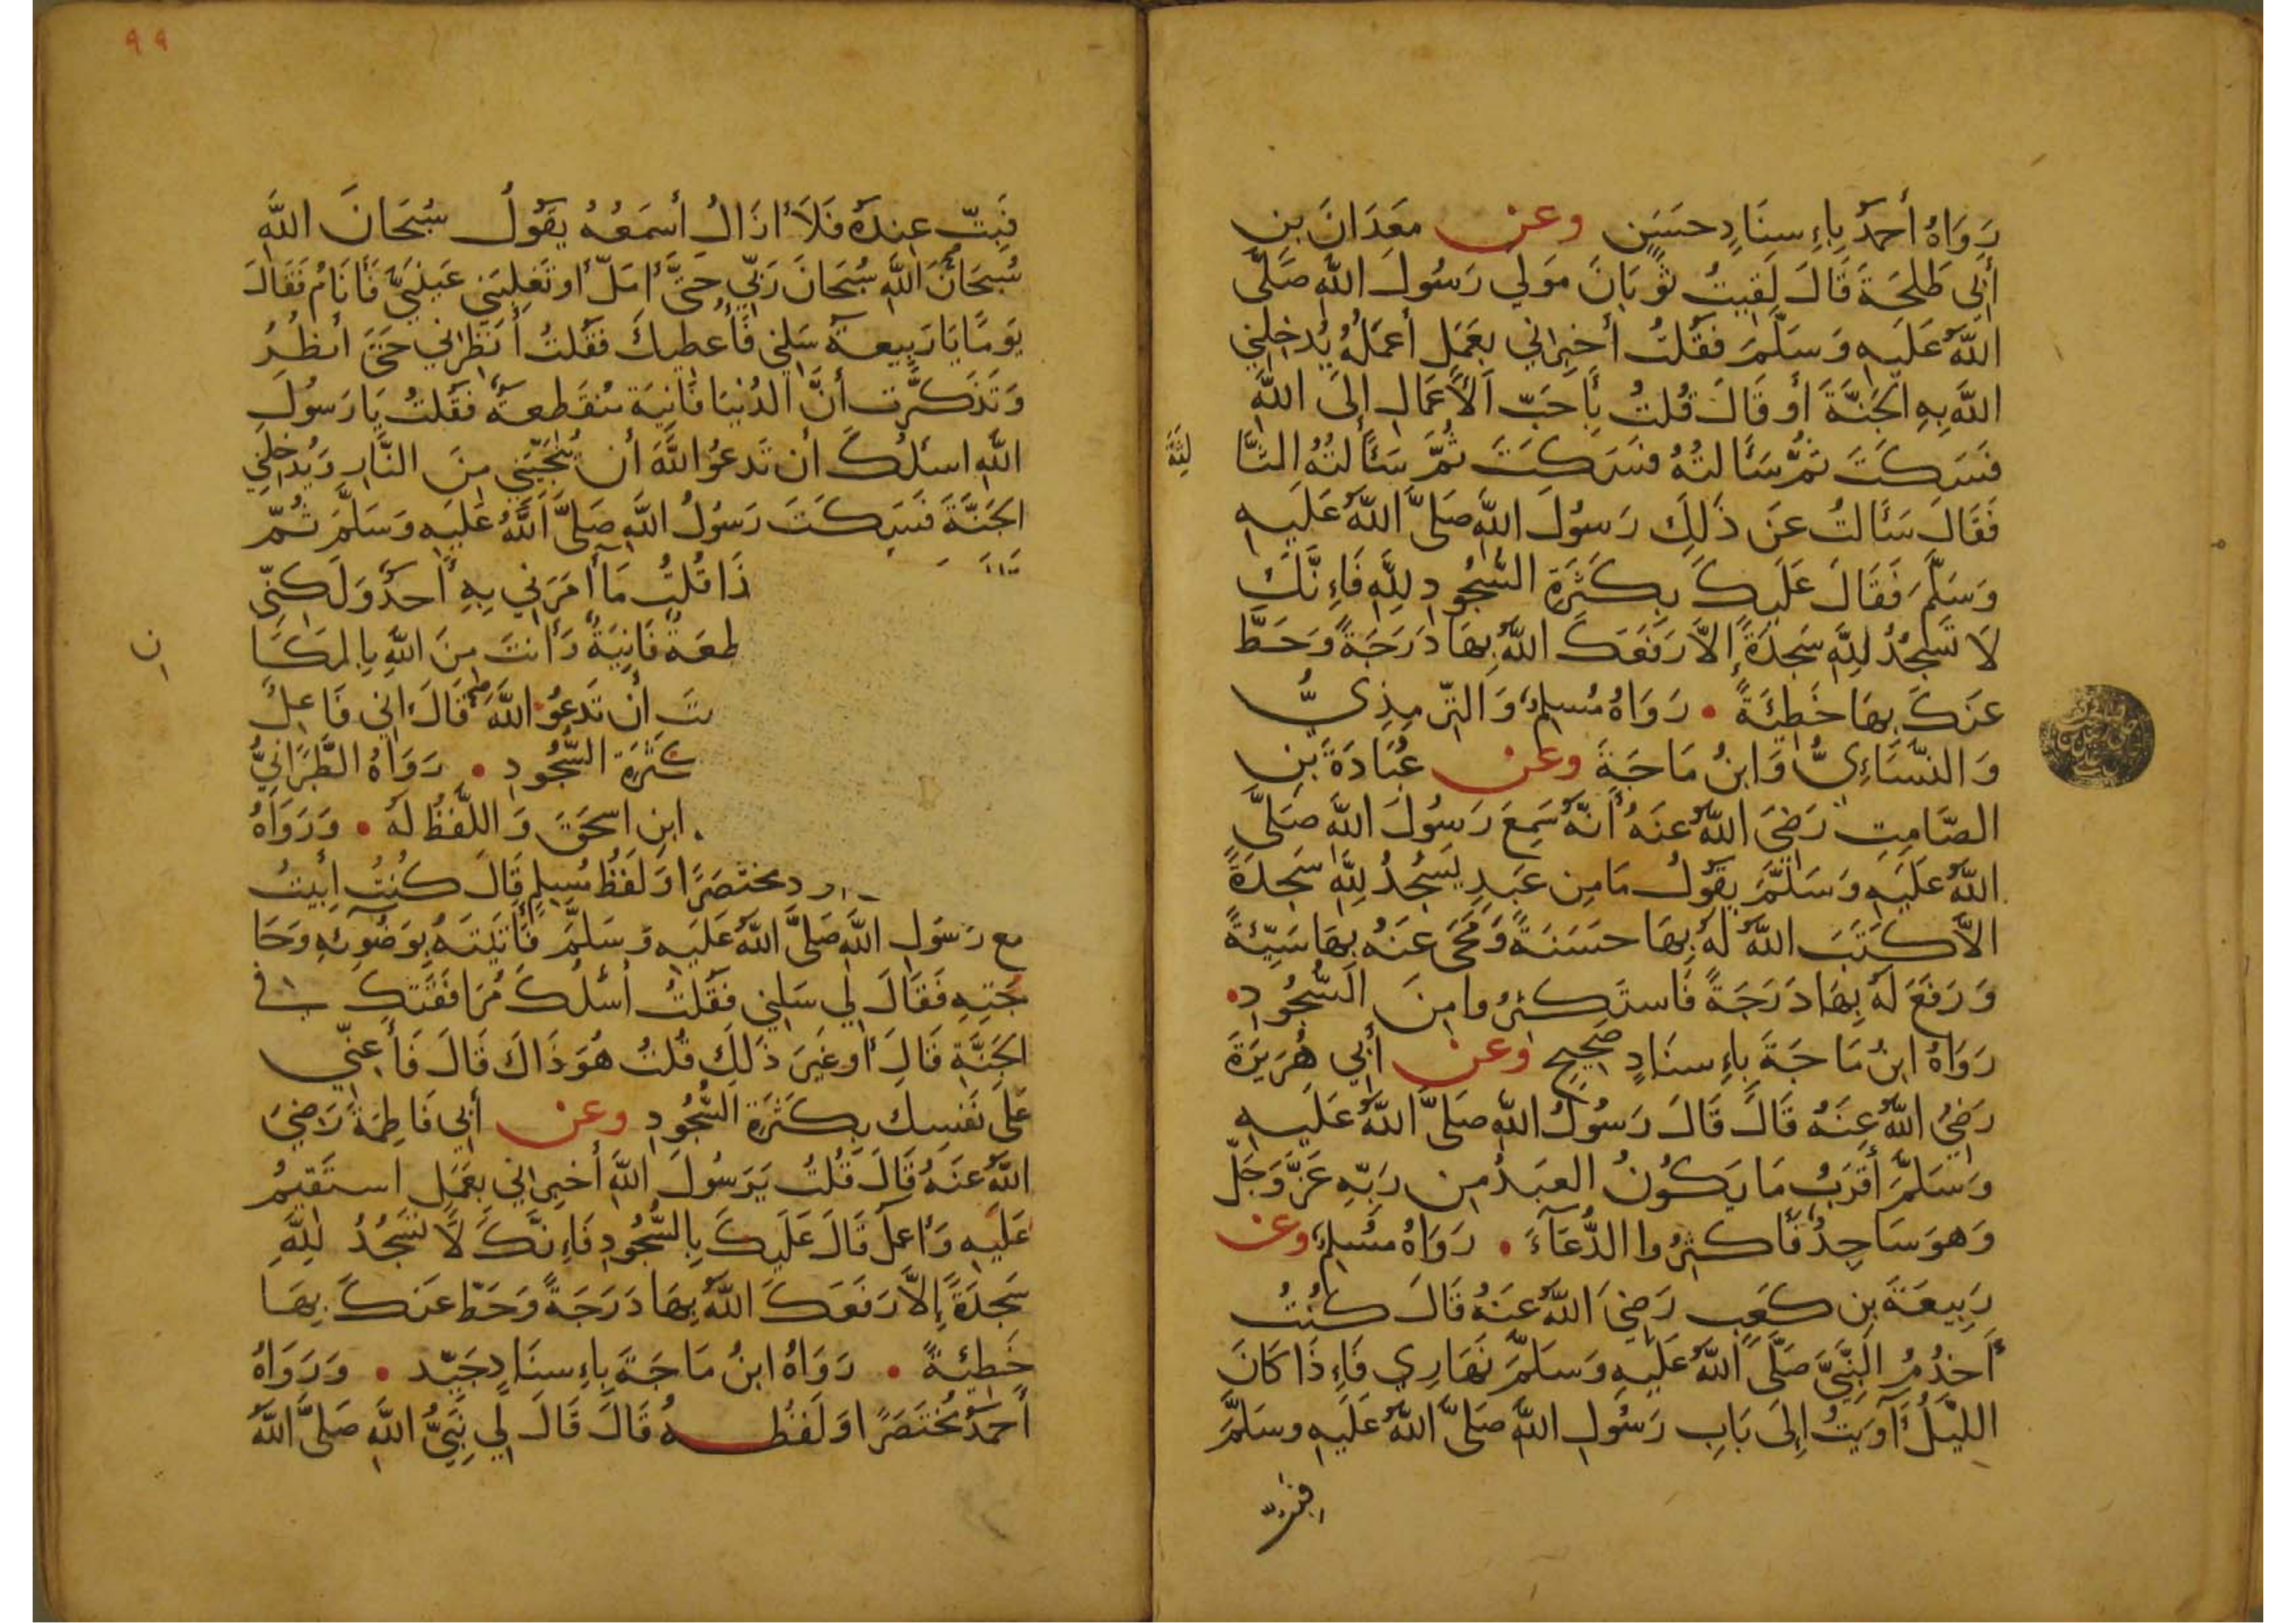 رَوَاهُ أَحْمَدُ بِاءِسنَادٍ حَسَنٍ وعن مَعَدَانَ بنِ
أَبِى طَلحَةَ قَالَ لَقِيتُ ثَوْبَانَ مَولي رَسُولَ اللَّهِ صَلَّى
اللَّهُ عَلَيهِ وَسَلَّمَ فَقُلتُ أَخبِراني بِعَمَلٍ أَعمَلُهُ يُدخِلنِي
اللَّه بِهِ الجَنَّةَ أَو قَالَ قُلتُ بِأَحَبّ الأَعمَالِ إِلَى اللَّهِ
فَسَكَتَ ثُمَّ سَأَلتُهُ فَسَكَتَ ثُمَّ سَأَلتُهُ الثَّا لِثَةَ
فَقَالَ سَأَلتُ عَن ذَلِكَ رَسُولَ اللَّهِ صَلَّى اللَّهُ عَلَيهِ
وَسَلَّمَ فَقَالَ عَلَيكَ بِكَثرَةِ السُّجُودِ لِلَّهِ فَاءِنَّكَ
لَا تَسجُدُ لِلَّهِ سَجدَةً إِلاَّ رَفَعَكَ اللَّهُ بِهَا دَرَجَةً وَحَطَّ
عَنكَ بِهَا خَطِئَةً • رَوَاهُ مُسلِمٌ وَالتِّرمِذِيُّ
وَالنَّسَاءِيُّ وَابنُ مَاجَةَ وعن عُبَادَةَ بنِ
الصَّامِتِ رَضِيَ اللَّهُ عَنهُ أَنَّهُ سَمِعَ رَسُولَ اللَّهِ صَلَّى
اللَّهُ عَلَيهِ وَسَلَّمَ يَقُولُ مَا مِن عَبدٍ يَسجُدُ لِلَّهِ سَجدَةً
الاَّ كَتَبَ اللَّهُ لَهُ بِهَا حَسَنَةً وَمَحَى عَنهُ بِهَا سَيِّئَةً
وَرَفَعَ لَهُ بِهَا دَرَجَةً فَاستَكثِرُوا مِنَ السُّجُودِ •
رَوَاهُ ابنُ مَاجَةَ بِاءِسنَادٍ صَحِيحٍ وعن أَبِي هُرَيرَةَ
رَضِيَ اللَّهُ عَنهُ قَالَ قَالَ رَسُولُ اللَّهِ صَلَّى اللَّهُ عَلَيهِ
وَسَلَّمَ أَقرَبُ مَا يَكُونُ العَبدُ مِن رَبِّهِ عَزَّ وَجَلّ
وَهوَ سَاجِدٌ فَأَكثِرُوا الدُّعَآءَ • رَوَاهُ مُسلِمٌ وعن
رَبِيعَةَ بنِ كَعبٍ رَضِيَ اللَّهُ عَنهُ قَالَ كُنتُ
أَخدُمُ النَّبِيَّ صَلَّى اللَّهُ عَلَيهِ وَسَلَّمَ نَهَارِي فَاءِذَا كَانَ
اللَّيلُ أَوَيتُ إِلَى بَابِ رَسُولِ اللَّهِ صَلَّى اللَّهُ عَلَيهِ وسَلَّمَ
٩٩
فَبِتّ عِندَهُ فَلَا ازَالُ أَسمَعُهُ يَقُولُ سُبحَانَ اللَّهِ
سُبحَانَ اللَّهِ سُبحَانَ رَبِّي حَتَّى أَمَلّ أَو تَغلِبَنِي عَينَيَّ فَأَنَامُ فَقَالَ
يَومًا يَا رَبِيعَةَ سَلنِي فَأُعطِيكَ فَقُلتُ أَنظِراني حَتَّى أَنظُرُ
وَتَذَكَّرت أَنَّ الدُّنيَا فَانِيَة مُنقَطِعَةٌ فَقُلتُ يَا رَسُولَ
اللَّهِ اسئلُكَ أَن تَدعُو اللَّهَ أَن يُنَجِّيَنِي مِنَ النَّارِ وَيُدخِلنِي
الجَنَّةَ فَسَكَتَ رَسُولُ اللَّهِ صَلَّى اللَّهُ عَلَيهِ وَسَلَّمَ ثُمّ
ذَا قُلتُ مَا أَمَرَنِي بِهِ أَحَدٌ وَلَكِنِّي
طِعَةٌ فَانِيَةٌ وَأَنتَ مِنَ اللَّهِ بِالمَكَا ن
تَ أَن تَدعُو اللَّهَ قَالَ اني فَاعِلٌ
كَثرَةِ السُّجُودِ • رَوَاهُ الطَّبَرَانِيُّ
ابنِ اسحَقَ وَاللَّفظُ لَهُ • وَرَوَاهُ
مختَصَرًا وَلَفظُ مُسلِمٍ قَالَ كُنتُ أَبِيتُ
مع رَسُولِ اللَّهِ صَلَّى اللَّهُ عَلَيهِ وَسَلَّمَ فَأَتَيتَهُ بِوَضُوئِهِ وَحَا
جَتِهِ فَقَالَ لِي سَلنِي فَقُلتُ أَسئَلُكَ مُرَافَقَتَكَ في
الجَنَّةِ قَالَ أَو غَيرَ ذَلِكَ قُلتُ هُوَ ذَاكَ قَالَ فَأَعِنِّي
عَلَى نَفسِك بِكَثرَةِ السُّجُودِ وعن أَبِي فَاطِمَةَ رَضِيَ
اللَّهُ عَنهُ قَالَ قُلتُ يَرَسُولَ اللَّهِ أَخبِراني بِعَمَلٍ استَقِيمُ
عَلَيهِ وَأعمَل قَالَ عَلَيكَ بِالسُّجُودِ فَاءِنَّكَ لَا تَسجُدُ لِلَّهِ
سَجدَةً إِلاَّ رَفَعَكَ اللَّهُ بِهَا دَرَجَةً وَحَطّ عَنكَ بِهَا
خَطِئَةً • رَوَاهُ ابنُ مَاجَةَ بِاءِسنَادٍ جَيّد • وَرَوَاهُ
أَحمَدُ مُختَصَرًا وَلَفظُهُ قَالَ قَالَ لِي نَبِيُّ اللَّهِ صَلَّى اللَّهُ